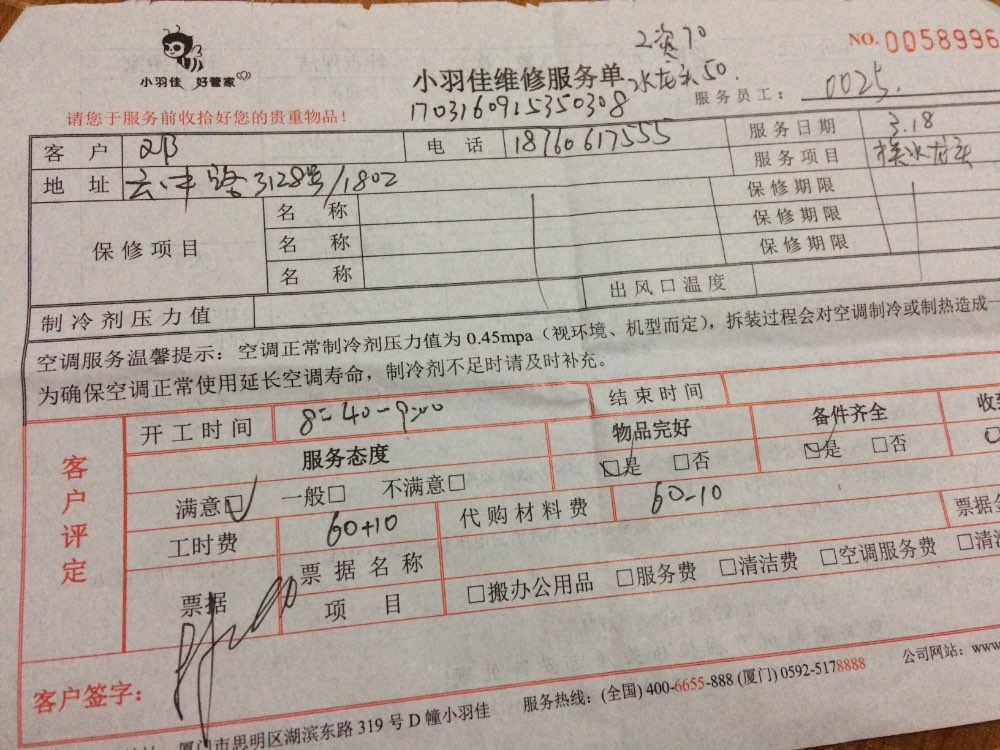 NO. 0058996
工资70
小羽佳 好管家
小羽佳维修服务单 水龙头50.
服务员工: 0025.
请您于服务前收拾好您的贵重物品!
1703160915350308
客户 电话 18760617555 服务日期 3.18
服务项目 换水龙头
地址 3128号/1802
保修项目
名称 保修期限
名称 保修期限
名称 保修期限
制冷剂压力值 出风口温度
空调服务温馨提示:空调正常制冷剂压力值为0.45mpa(视环境、机型而定),拆装过程会对空调制冷或制热造成一
为确保空调正常使用延长空调寿命,制冷剂不足时请及时补充。
客户评定
开工时间 8:40-9:40 结束时间
服务态度 物品完好 备件齐全 收
满意☑ 一般□ 不满意□ ☑是 □否 ☑是 □否
工时费 60+10 代购材料费 60-10 票据
票据
票据名称
项目 □搬办公用品 □服务费 □清洁费 □空调服务费 □清
客户签字:
厦门市思明区湖滨东路319号D幢小羽佳 服务热线:(全国) 400-6655-888 (厦门) 0592-5178888 公司网站:www.